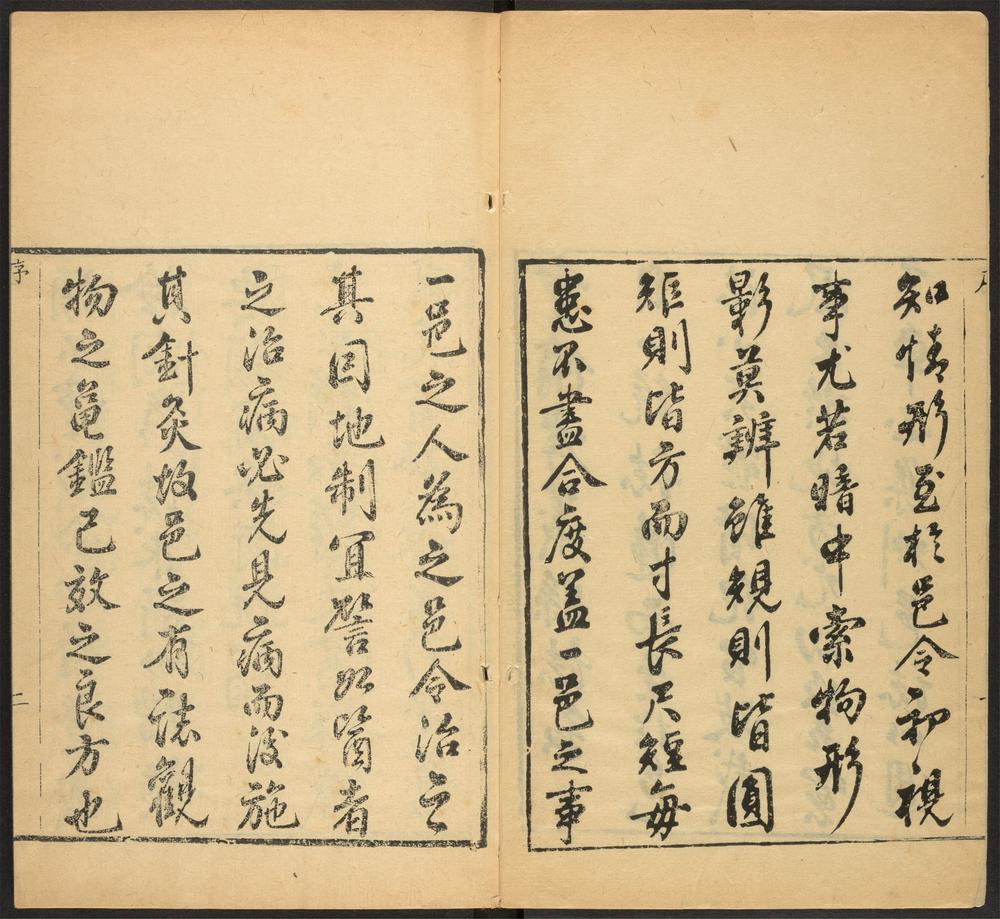 知情形至於邑令初視
事尤若暗中索物形
影莫辨雖規則皆圓
矩則皆方而寸長尺短每
患不盡合度蓋一邑之事
一邑之人為之邑令治之
其因地制宜譬如醫者
之治病必先見病而後施
其針灸故邑之有誌觀
物之龜鑑已效之良方也
序
二